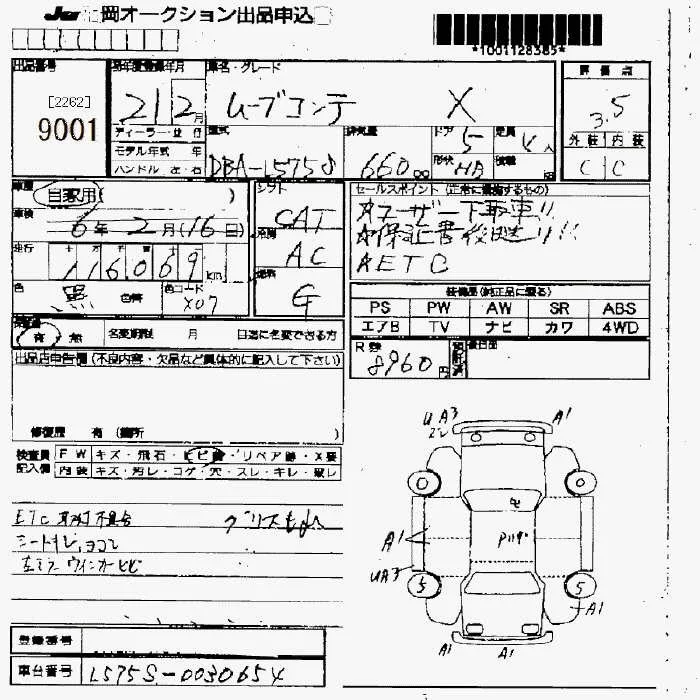 JU 岡オークション出品申込
*1001128385*
出品番号
[2262]
9001
初年度登録年月
21 2月
ディーラー・並行
モデル年式 年
ハンドル 左・右
車名・グレード
ムーブコンテ X
型式
DBA-L575S
排気量
660cc
ドア
5
形状
HB
定員
4人
積載
評価点
3.5
外装 内装
C C
車歴
自家用( )
車検
6年2月(16日)
走行
十 万 千 百 十
116069km
色
黒
色替
色コード
X07
シフト
CAT
冷房
AC
燃料
G
セールスポイント (正常に機能するもの)
☆ユーザー下取車!!
☆保証書後送り!!
☆ETC
装備品(純正品に限る)
PS PW AW SR ABS
エアB TV ナビ カワ 4WD
R券
8960円
有 無
名変期限 月 日迄に名変できる方
出品店申告欄 (不良内容・欠品など具体的に記入して下さい)
修復歴 有 (箇所 )
検査員記入欄
FW キズ・飛石・ヒビ・リペア跡・X要
内装 キズ・汚レ・コゲ・穴・スレ・キレ・破レ
ETC 取付不具合
シートキレ、ヨゴレ
左ミラーウィンカーヒビ
登録番号
車台番号 L575S-0030654
UA3
A1
A1
UA3
5
5
A1
A1
A1